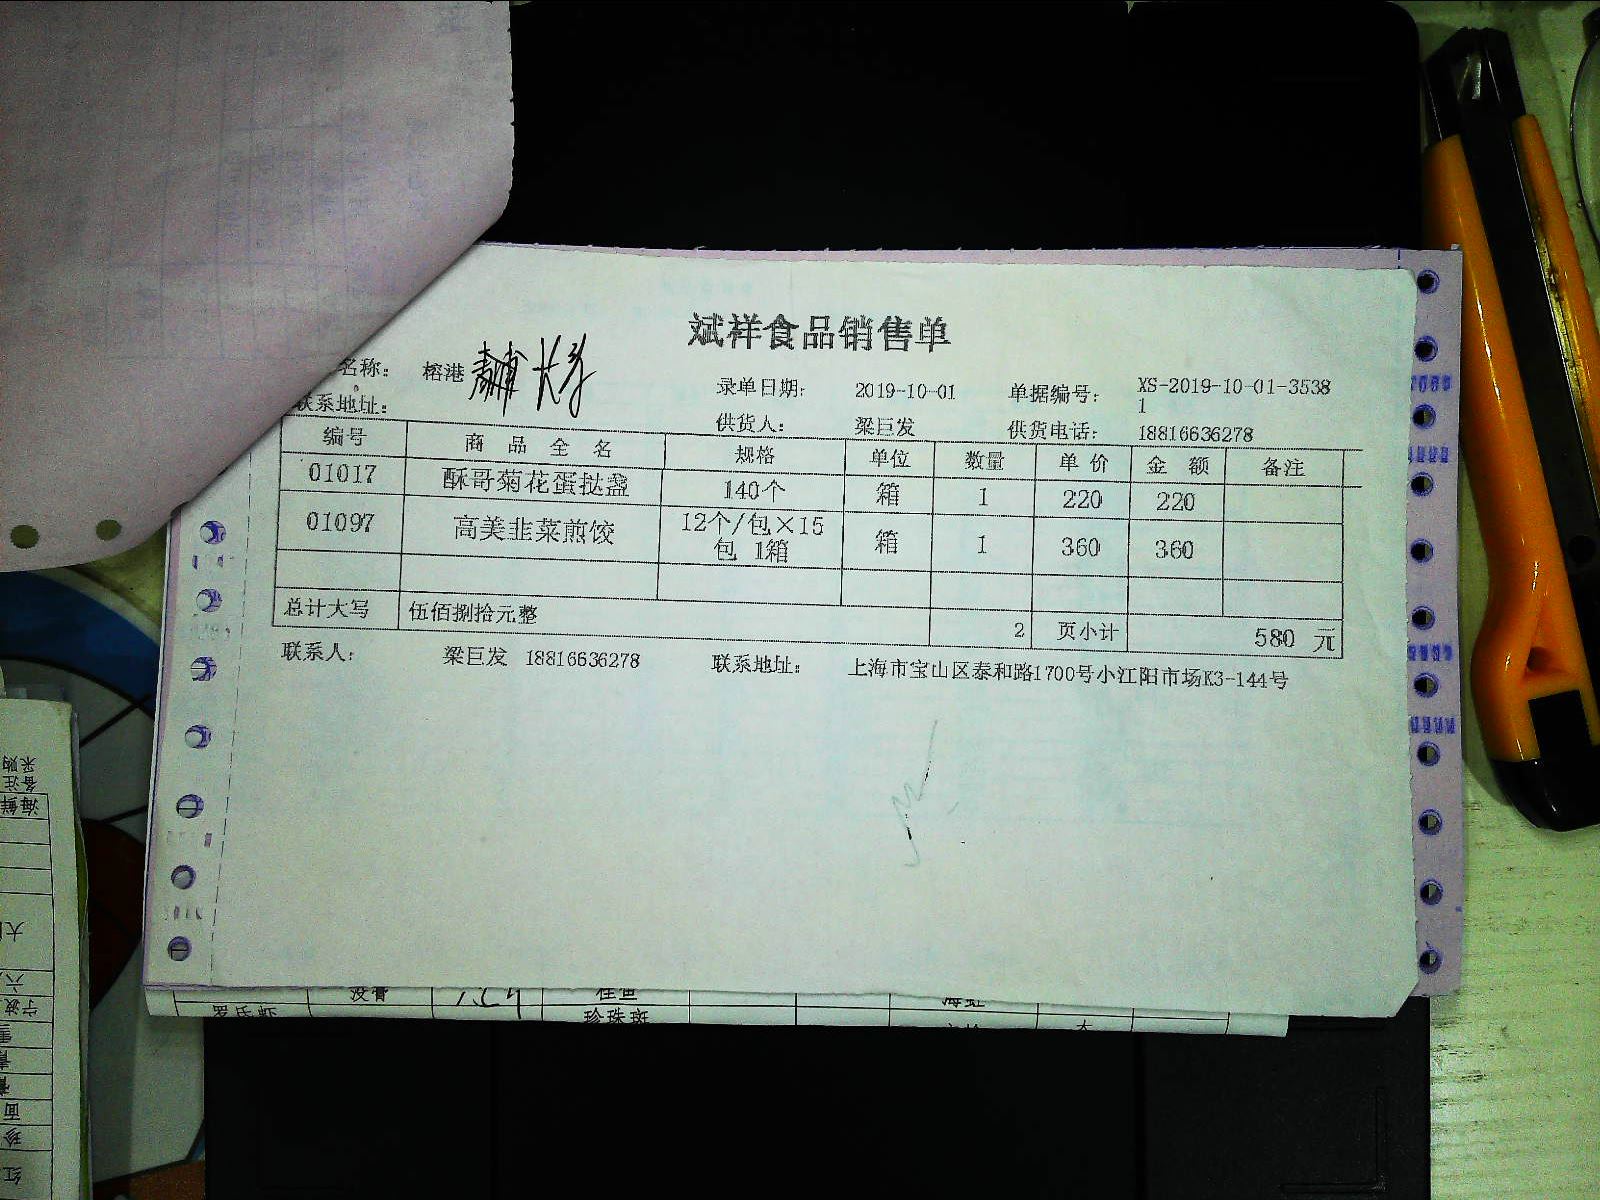 斌祥食品销售单
名称： 榕港 青浦
录单日期： 2019-10-01 单据编号： XS-2019-10-01-3538
1
联系地址： 供货人： 梁巨发 供货电话： 18816636278
编号 商品全名 规格 单位 数量 单价 金额 备注
01017 酥哥菊花蛋挞盏 140个 箱 1 220 220
01097 高美韭菜煎饺 12个/包×15 箱 1 360 360
包 1箱
总计大写 伍佰捌拾元整 2 页小计 580 元
联系人： 梁巨发 18816636278 联系地址： 上海市宝山区泰和路1700号小江阳市场K3-144号
没骨 桂鱼 海虹
罗氏虾 珍珠斑
采购
备注
海鲜